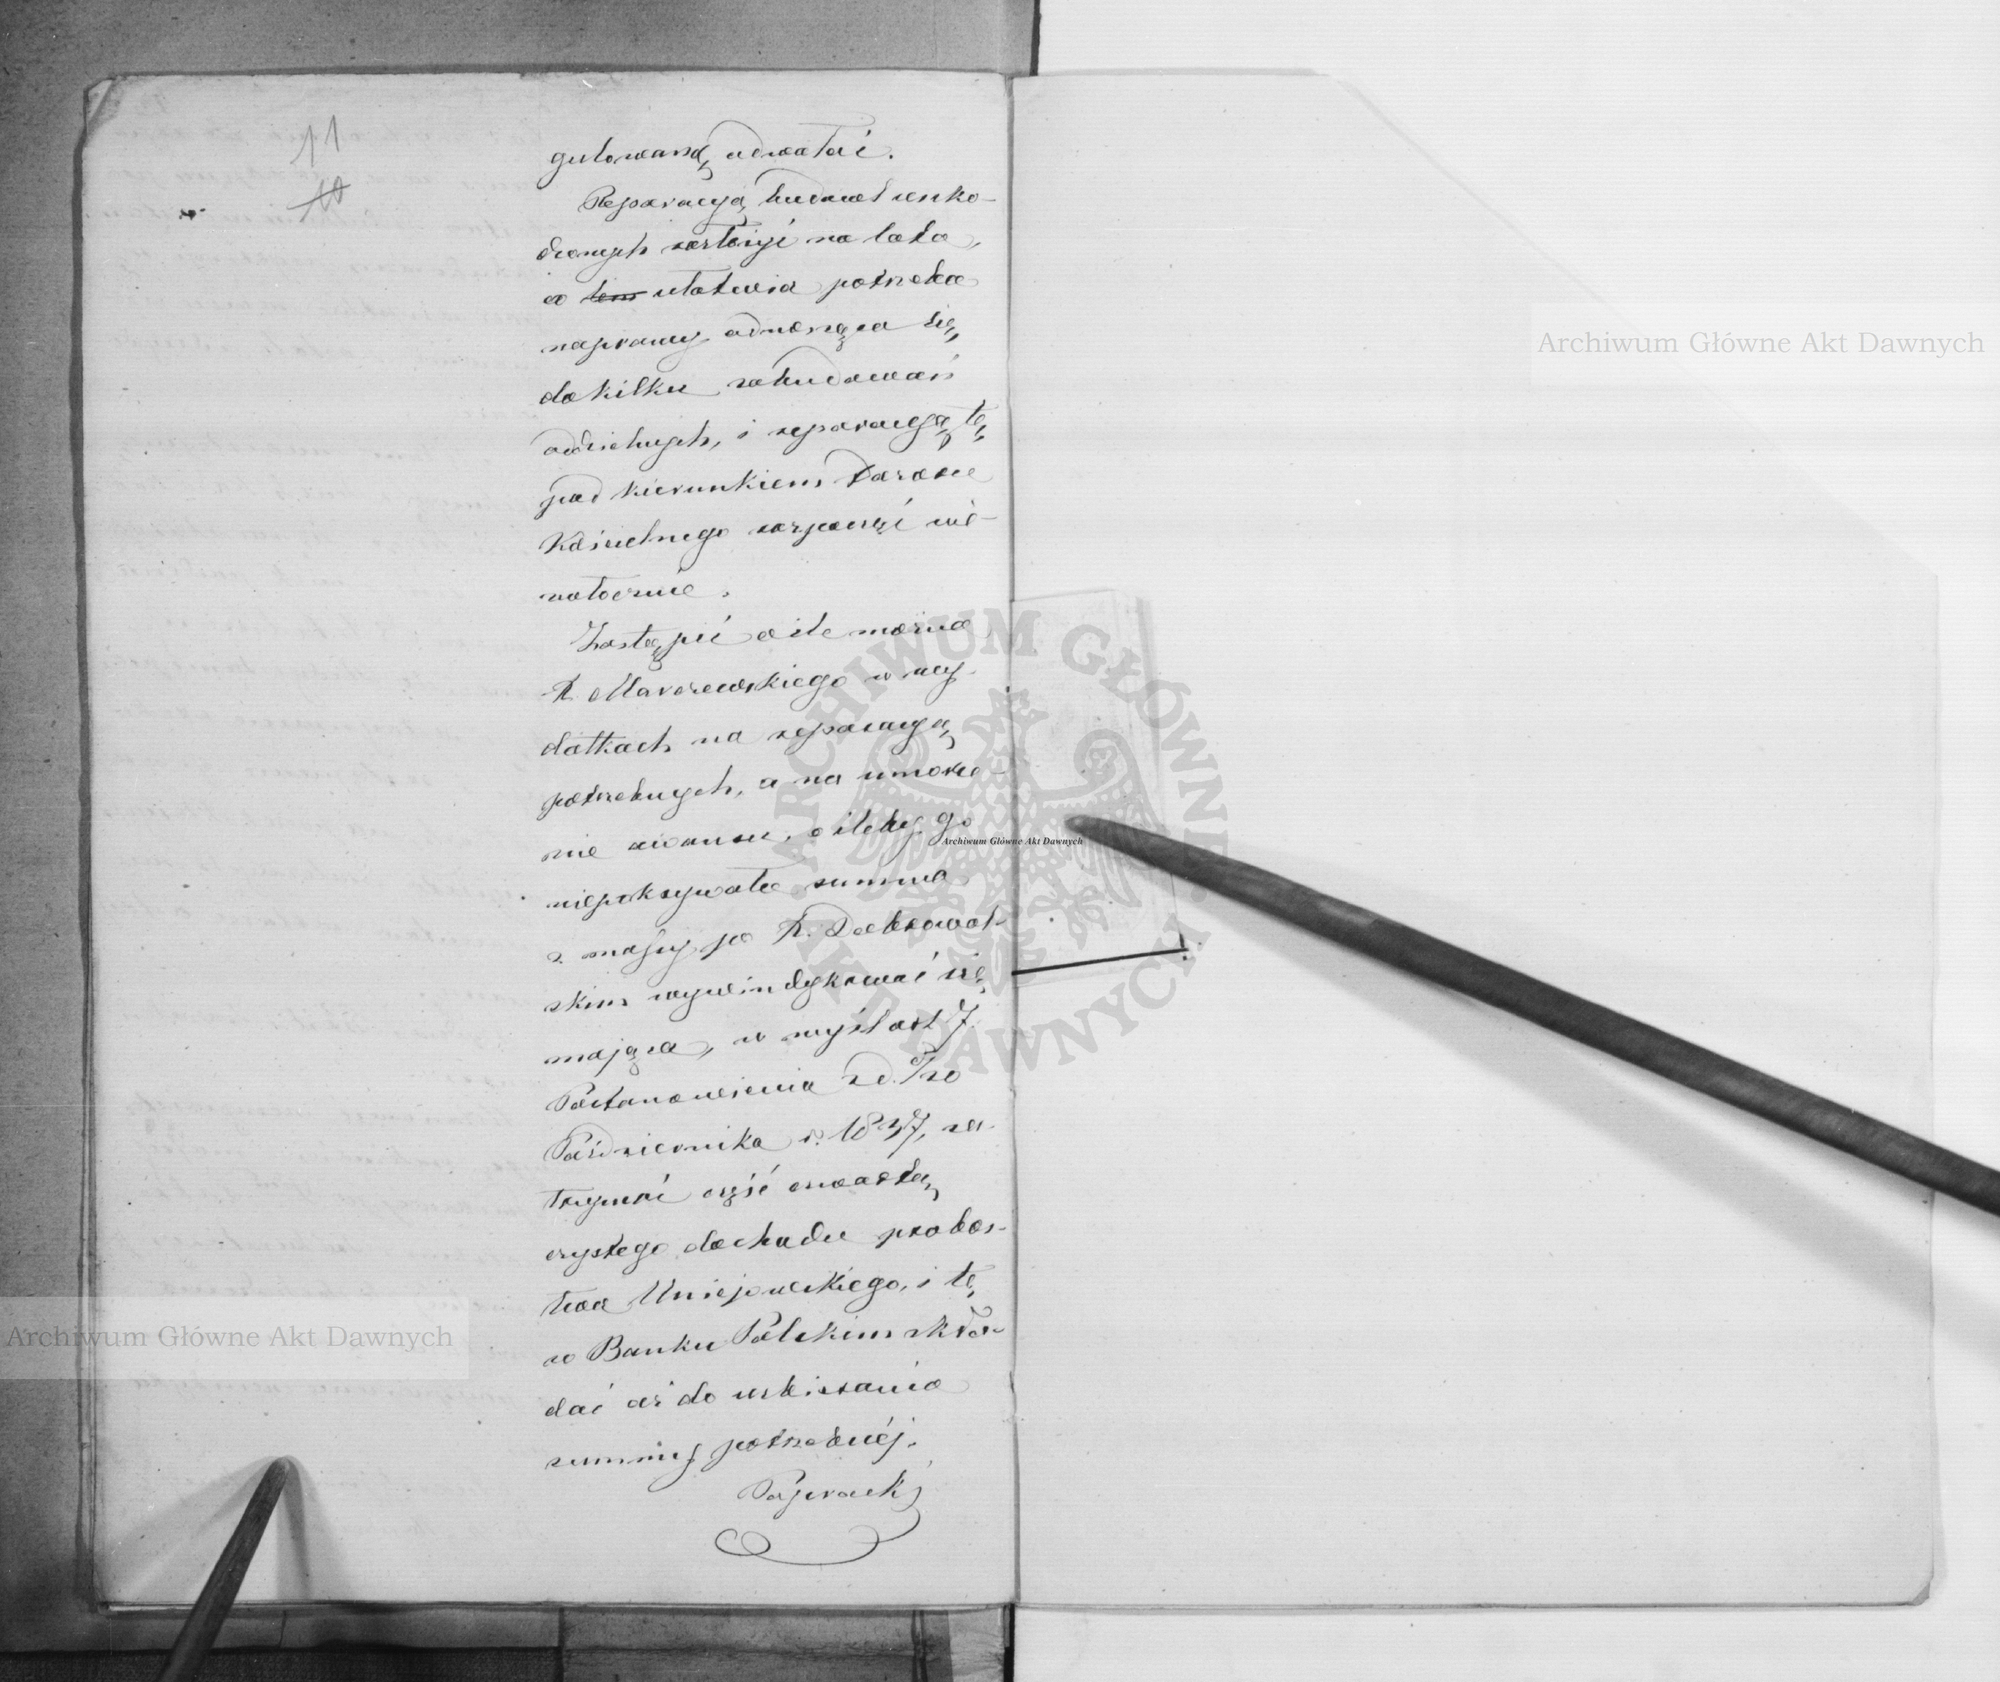 11
10
gulowaną odwołać.
Reparacyą budowl uszko-
dzonych rozłożyć na lata,
a tem ułatwia potrzeba
naprawy odnosząca się
do kilku zabudowań
oddzielnych, i reparacyą tę
pod kierunkiem Dozoru
Kościelnego rozpocząć nie-
zwłocznie.
Zastąpić o ile można
X. Marczewskiego w wy-
datkach na reparacyą
potrzebnych, a na umorze-
nie awansu, o ileby go
niepokrywała summa
z massy po X. Dobrowol-
skim wywindykować się
mająca, w myśl art 7.
Postanowienia z d. 7/20
Października r. 1847, za-
trzymać część czwartą
czystego dochodu probos-
twa Uniejowskiego, i tę
w Banku Polskim skła-
dać aż do uzbierania
summy potrzebnéj.
Paprocki
Archiwum Główne Akt Dawnych
Archiwum Główne Akt Dawnych
Archiwum Główne Akt Dawnych
ARCHIWUM GŁÓWNE AKT DAWNYCH